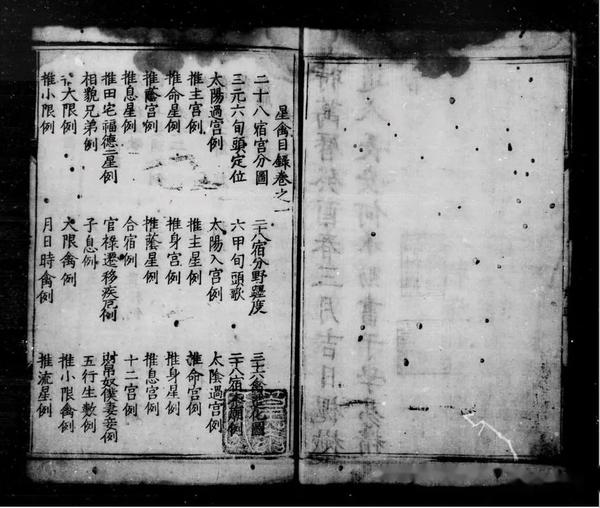 道人長安何勛書于學易精
時萬曆癸酉春三月吉日
星禽目錄卷之一
二十八宿宮分圖 二十八宿分野躔度 三十六禽變化圖
三元六旬頭定位 六甲旬頭歌 二十八宿本廟例
太陽過宮例 太陽入宮例 太陰過宮例
推主宮例 推主星例 推命宮例
推命星例 推身宮例 推身星例
推蔭宮例 推蔭星例 推息宮例
推息星例 合宿例 十二宮例
推田宅福德二星例 官祿遷移疾厄例 財帛奴僕妻妾例
相貌兄弟例 子息例 五行生數例
大限例 大限禽例 推小限禽例
推小限例 月日時禽例 推流星例